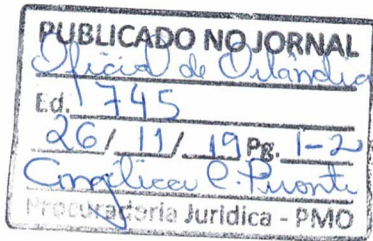 PUBLICADO NO JORNAL
Oficial de Orlândia
Ed. 1745
26/11/19 Pg. 1-2
Angélica C.
Procuradoria Jurídica - PMO